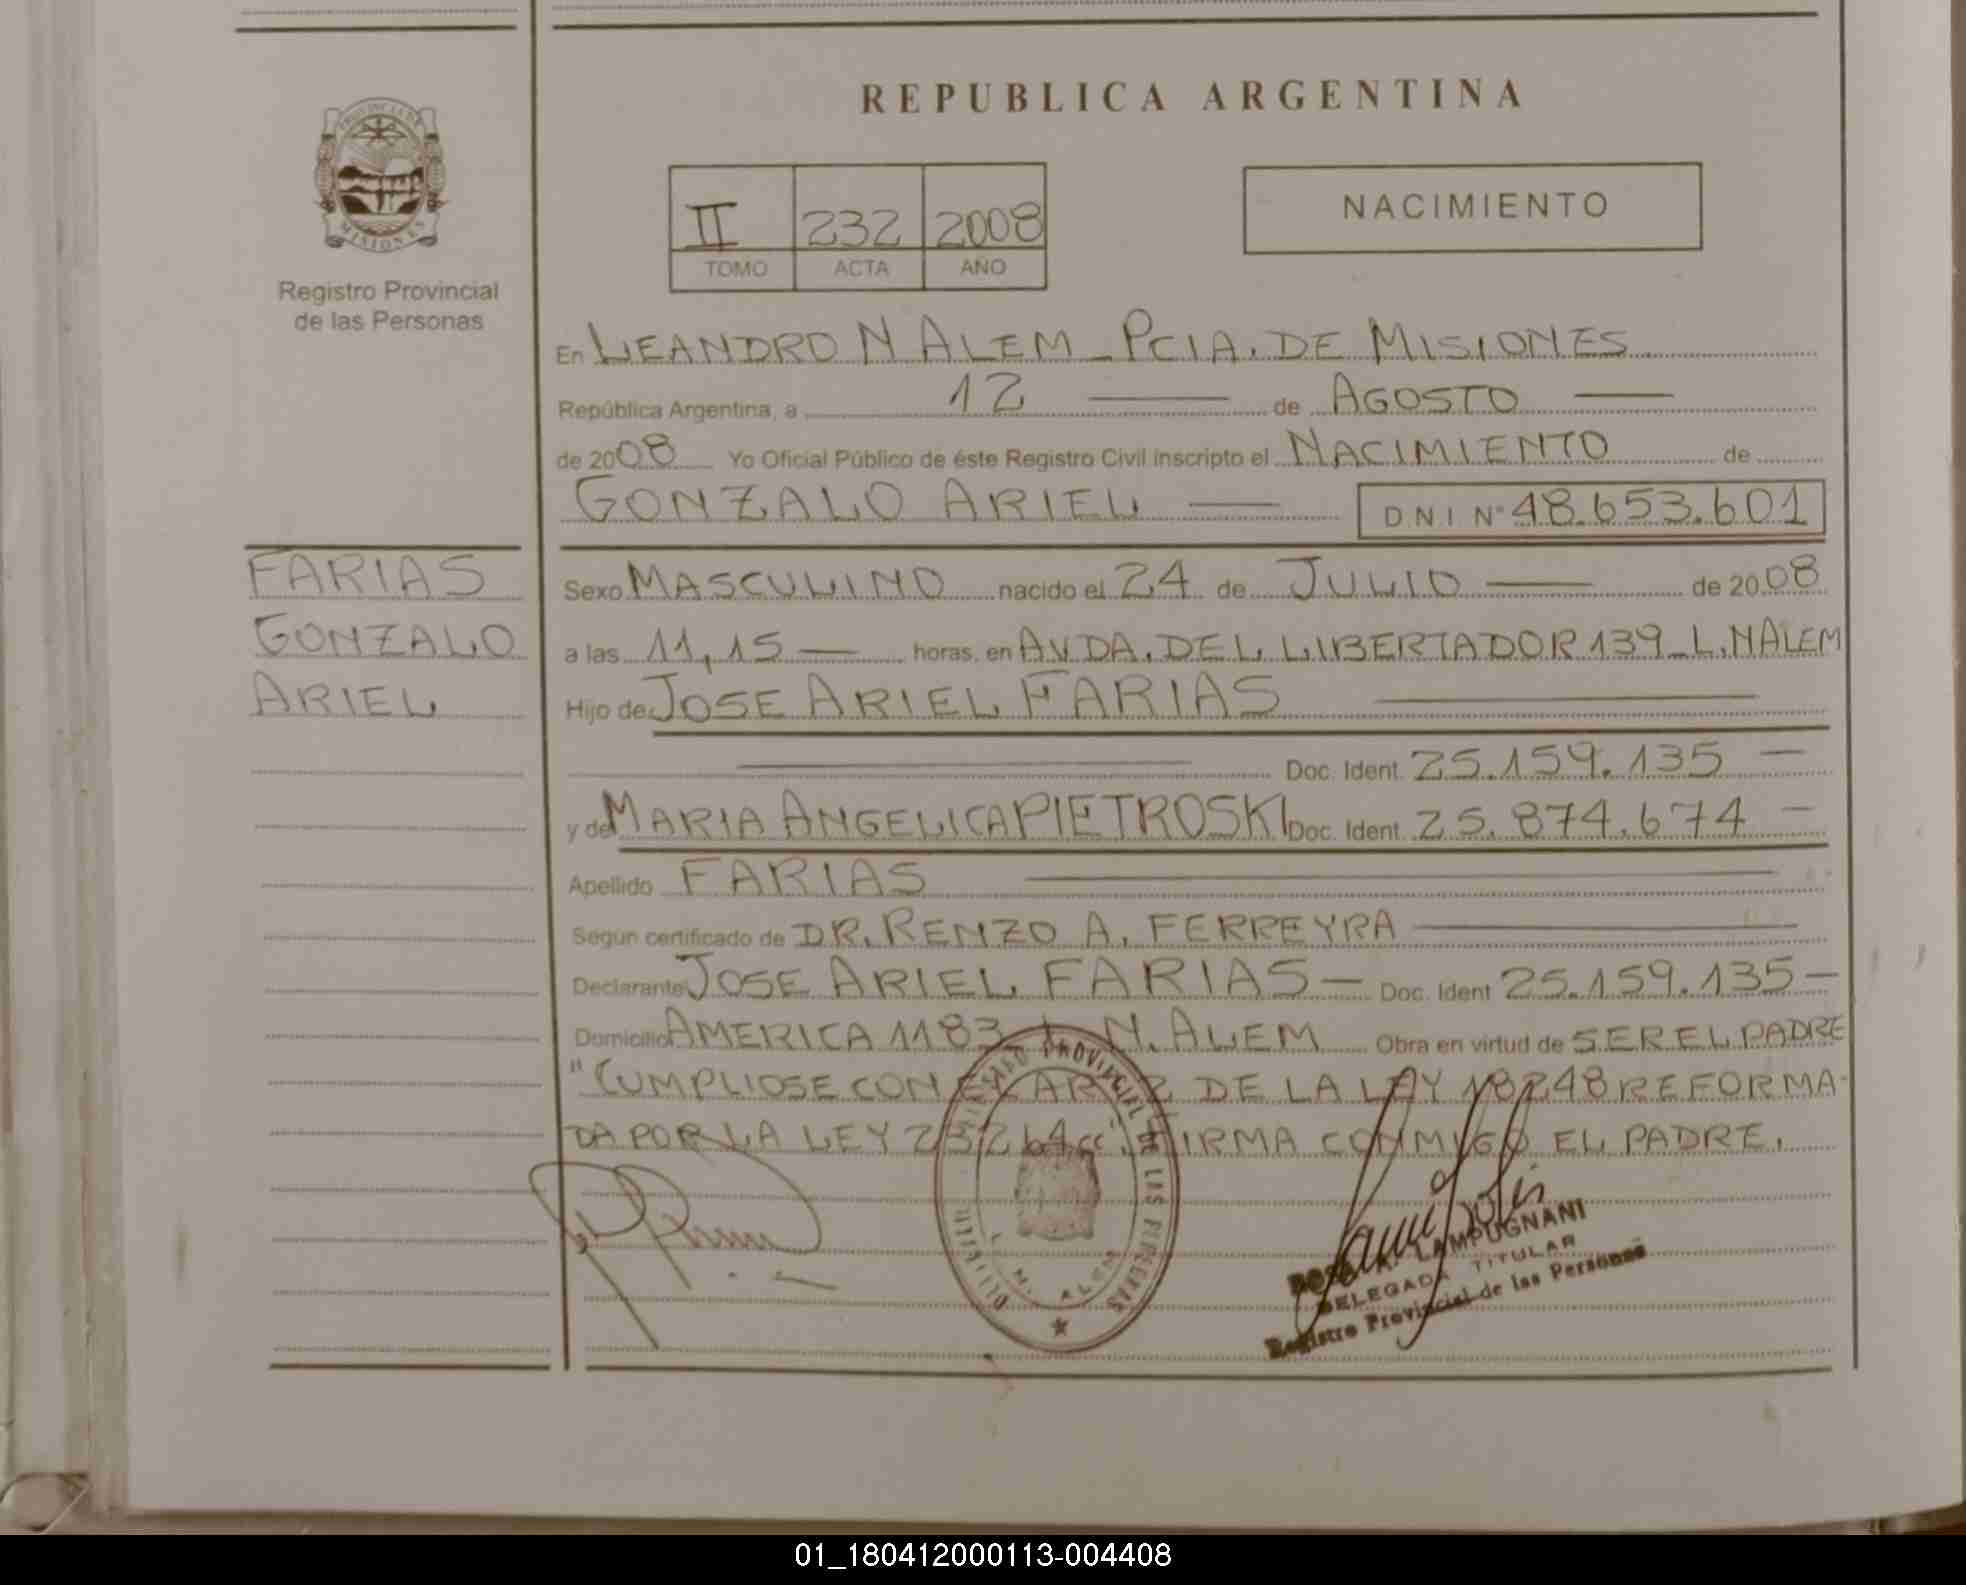 REPUBLICA ARGENTINA
PROVINCIA DE
MISIONES
Registro Provincial
de las Personas
II 232 2008
TOMO ACTA AÑO
NACIMIENTO
En LEANDRO N ALEM - PCIA. DE MISIONES
República Argentina, a 12 de AGOSTO
de 2008 Yo Oficial Público de éste Registro Civil inscripto el NACIMIENTO de
GONZALO ARIEL DNI Nº 48.653.601
FARIAS
GONZALO
ARIEL
Sexo MASCULINO nacido el 24 de JULIO de 2008
a las 11,15 horas, en AVDA. DEL LIBERTADOR 139 - L.N ALEM
Hijo de JOSE ARIEL FARIAS
Doc. Ident. 25.159.135
y de MARIA ANGELICA PIETROSKI Doc. Ident. 25.874.674
Apellido FARIAS
Segun certificado de DR. RENZO A. FERREYRA
Declarante JOSE ARIEL FARIAS - Doc. Ident 25.159.135 -
Domicilio AMERICA 1183 L N. ALEM Obra en virtud de SER EL PADRE
"CUMPLIOSE CON DE LA LEY 18248 REFORMA-
DA POR LA LEY 23264". FIRMA CONMIGO EL PADRE.
PROVINCIAL DE LAS PERSONAS
L. N. ALEM
LAMPUGNANI
DELEGADA TITULAR
Registro Provincial de las Personas
01_180412000113-004408